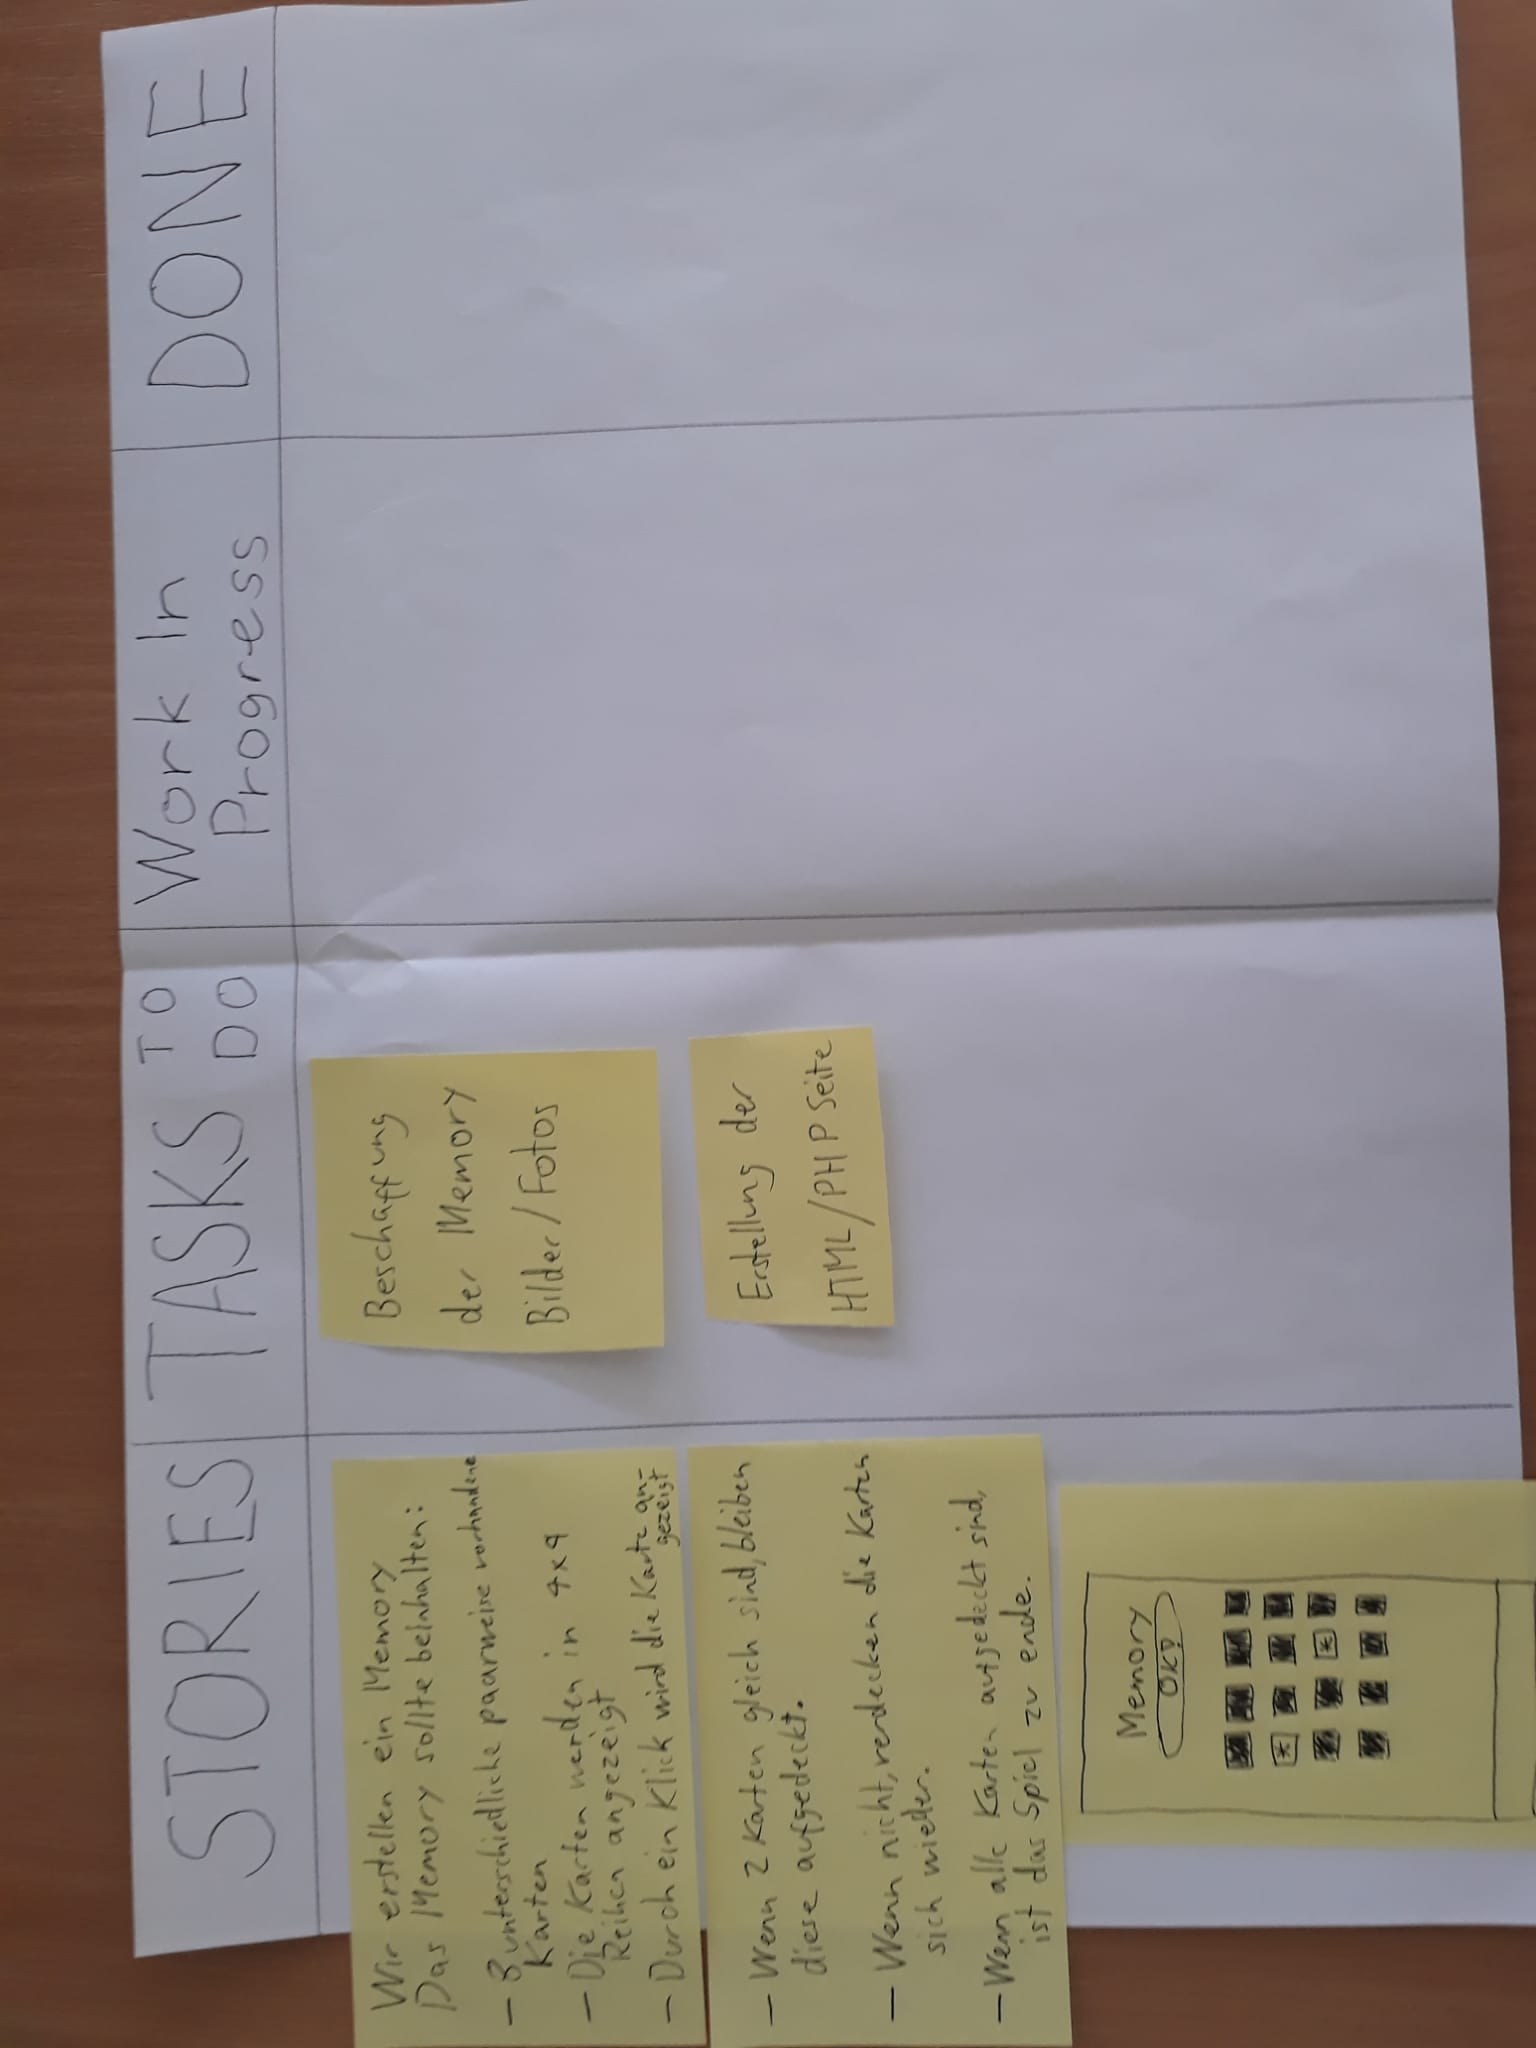 STORIES
TASKS TO DO
Work In Progress
DONE
Wir erstellen ein Memory
Das Memory sollte beinhalten:
- 8 unterschiedliche paarweise vorhandene
Karten
- Die Karten werden in 4x4
Reihen angezeigt
- Durch ein Klick wird die Karte an-
gezeigt
- Wenn 2 Karten gleich sind, bleiben
diese aufgedeckt.
- Wenn nicht, verdecken die Karten
sich wieder.
- Wenn alle Karten aufgedeckt sind,
ist das Spiel zu ende.
Memory
OK?
Beschaffung
der Memory
Bilder/Fotos
Erstellung der
HTML/PHP Seite